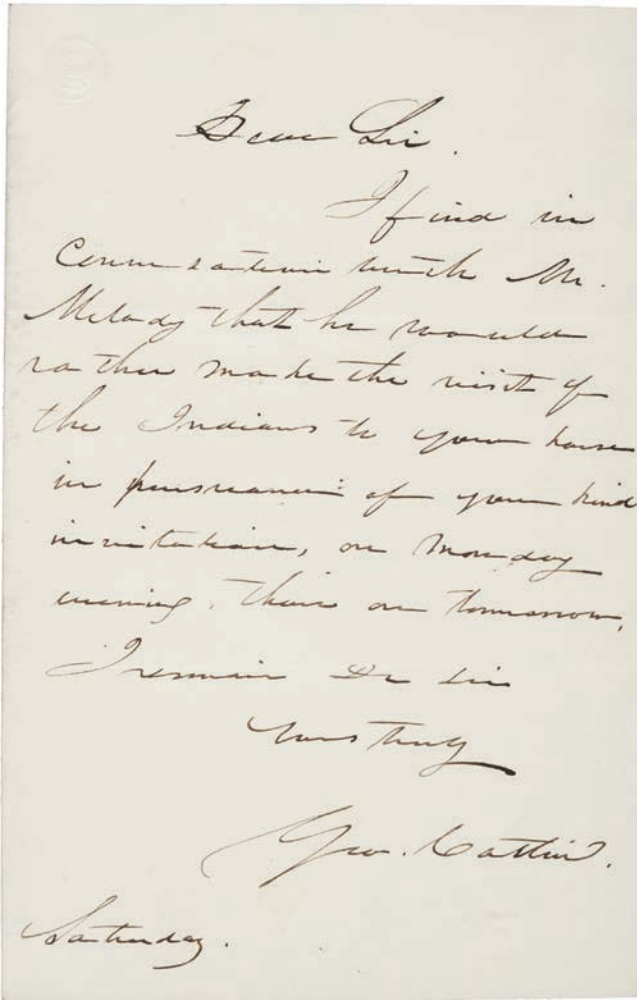 Dear Sir.
I find in
Conversation with Mr.
Melody that he would
rather make the visit of
the Indians to your house
in pursuance of your kind
invitation, on Monday
evening, than on tomorrow,
I remain Dr Sir
Yours truly
Geo. Catlin.
Saturday.